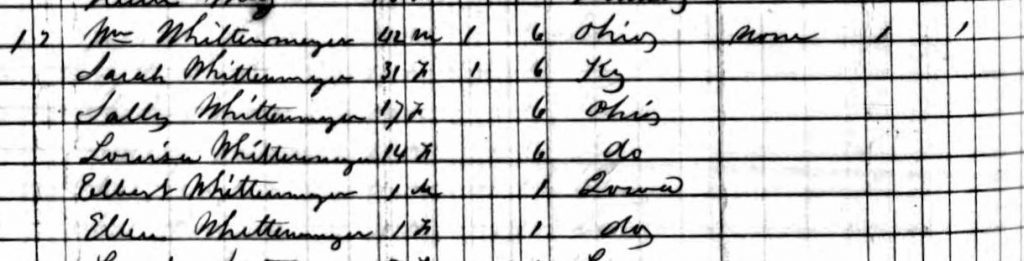 17 Wm Whittenmeyer 42 m 1 6 Ohio none 1 1
Sarah Whittenmeyer 31 F 1 6 Ky
Sally Whittenmeyer 17 F 6 Ohio
Louisa Whittenmeyer 14 F 6 do
Elbert Whittenmeyer 1 M 1 Iowa
Ellen Whittenmeyer 1 F 1 do